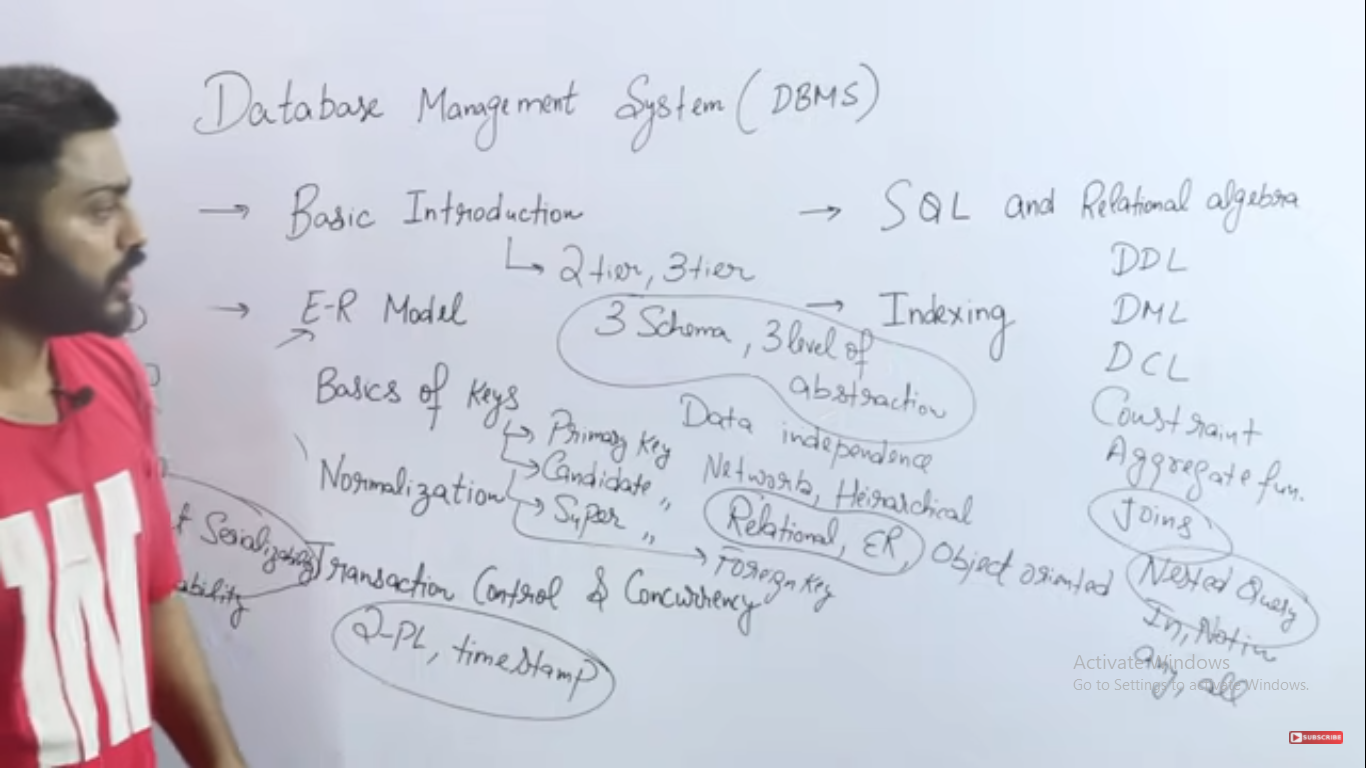 Database Management System (DBMS)
→ Basic Introduction
2 tier, 3 tier
→ E-R Model
3 Schema, 3 level of
abstraction
Data independence
Basics of Keys
Primary Key
Candidate "
Super "
Foreign Key
Network, Heirarchical
Relational, ER, Object oriented
Normalization
Serializability
ability
Transaction Control & Concurrency
2-PL, timeStamp
→ SQL and Relational algebra
DDL
DML
DCL
Constraint
Aggregate fun.
Joins
Nested Query
In, Not in
any, all
→ Indexing
Activate Windows
Go to Settings to activate Windows.
SUBSCRIBE